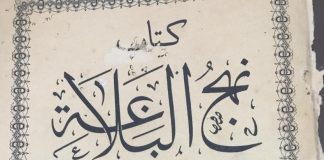 كتاب
نهج البلاغة